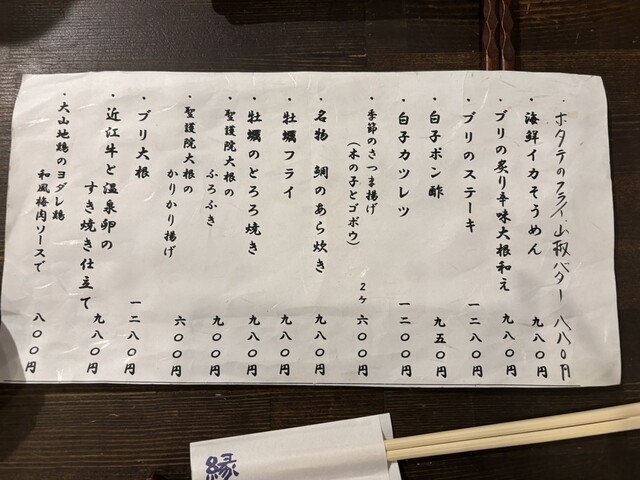 ・ホタテのフライ山椒バター 八八〇円
・海鮮イカそうめん 九八〇円
・ブリの炙り辛味大根和え 九八〇円
・ブリのステーキ 一二八〇円
・白子ポン酢 九五〇円
・白子カツレツ 一二〇〇円
・季節のさつま揚げ
(木の子とゴボウ) 2ケ 六〇〇円
・名物 鯛のあら炊き 九八〇円
・牡蠣フライ 九八〇円
・牡蠣のとろろ焼き 九八〇円
・聖護院大根の
ふろふき 九〇〇円
・聖護院大根の
かりかり揚げ 六〇〇円
・ブリ大根 一二八〇円
・近江牛と温泉卵の
すき焼き仕立て 九八〇円
・大山地鶏のヨダレ鶏
和風梅肉ソースで 八〇〇円
縁